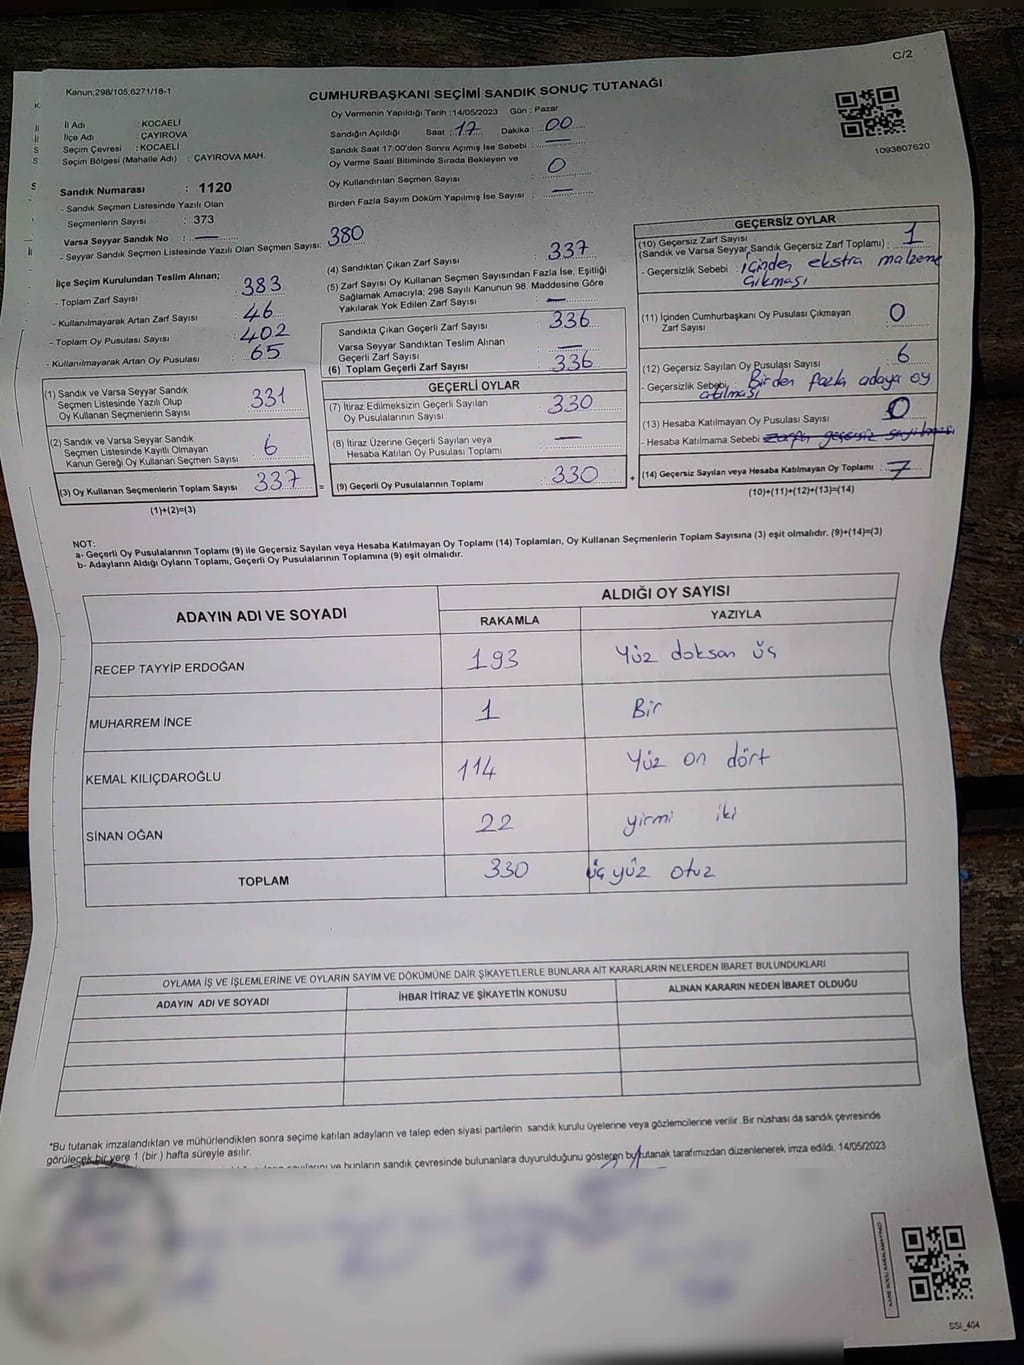 C/2
Kanun,298/105,6271/18-1
CUMHURBAŞKANI SEÇİMİ SANDIK SONUÇ TUTANAĞI
1093807620
İl Adı : KOCAELİ
İlçe Adı : ÇAYIROVA
Seçim Çevresi : KOCAELİ
Seçim Bölgesi (Mahalle Adı) : ÇAYIROVA MAH.
Sandık Numarası : 1120
- Sandık Seçmen Listesinde Yazılı Olan
Seçmenlerin Sayısı : 373
Varsa Seyyar Sandık No : —
- Seyyar Sandık Seçmen Listesinde Yazılı Olan Seçmen Sayısı: 380
Oy Vermenin Yapıldığı Tarih :14/05/2023 Gün : Pazar
Sandığın Açıldığı Saat : 17 Dakika : 00
Sandık Saat 17:00'den Sonra Açılmış İse Sebebi : —
Oy Verme Saati Bitiminde Sırada Bekleyen ve
Oy Kullandırılan Seçmen Sayısı : 0
Birden Fazla Sayım Döküm Yapılmış İse Sayısı : —
İlçe Seçim Kurulundan Teslim Alınan;
- Toplam Zarf Sayısı : 383
- Kullanılmayarak Artan Zarf Sayısı : 46
- Toplam Oy Pusulası Sayısı : 402
- Kullanılmayarak Artan Oy Pusulası : 65
(1) Sandık ve Varsa Seyyar Sandık
Seçmen Listesinde Yazılı Olup
Oy Kullanan Seçmenlerin Sayısı : 331
(2) Sandık ve Varsa Seyyar Sandık
Seçmen Listesinde Kayıtlı Olmayan
Kanun Gereği Oy Kullanan Seçmen Sayısı : 6
(3) Oy Kullanan Seçmenlerin Toplam Sayısı : 337 =
(1)+(2)=(3)
(4) Sandıktan Çıkan Zarf Sayısı : 337
(5) Zarf Sayısı Oy Kullanan Seçmen Sayısından Fazla İse, Eşitliği
Sağlamak Amacıyla; 298 Sayılı Kanunun 98. Maddesine Göre
Yakılarak Yok Edilen Zarf Sayısı : —
Sandıkta Çıkan Geçerli Zarf Sayısı : 336
Varsa Seyyar Sandıktan Teslim Alınan
Geçerli Zarf Sayısı : —
(6) Toplam Geçerli Zarf Sayısı : 336
GEÇERLİ OYLAR
(7) İtiraz Edilmeksizin Geçerli Sayılan
Oy Pusulalarının Sayısı : 330
(8) İtiraz Üzerine Geçerli Sayılan veya
Hesaba Katılan Oy Pusulası Toplamı : —
(9) Geçerli Oy Pusulalarının Toplamı : 330 +
GEÇERSİZ OYLAR
(10) Geçersiz Zarf Sayısı
(Sandık ve Varsa Seyyar Sandık Geçersiz Zarf Toplamı) : 1
- Geçersizlik Sebebi : içinden ekstra malzeme
çıkması
(11) İçinden Cumhurbaşkanı Oy Pusulası Çıkmayan
Zarf Sayısı : 0
(12) Geçersiz Sayılan Oy Pusulası Sayısı : 6
- Geçersizlik Sebebi : Birden fazla adaya oy
atılması
(13) Hesaba Katılmayan Oy Pusulası Sayısı : 0
- Hesaba Katılmama Sebebi zarfın geçersiz sayılması
(14) Geçersiz Sayılan veya Hesaba Katılmayan Oy Toplamı : 7
(10)+(11)+(12)+(13)=(14)
NOT:
a- Geçerli Oy Pusulalarının Toplamı (9) ile Geçersiz Sayılan veya Hesaba Katılmayan Oy Toplamı (14) Toplamları, Oy Kullanan Seçmenlerin Toplam Sayısına (3) eşit olmalıdır. (9)+(14)=(3)
b- Adayların Aldığı Oyların Toplamı, Geçerli Oy Pusulalarının Toplamına (9) eşit olmalıdır.
ADAYIN ADI VE SOYADI
ALDIĞI OY SAYISI
RAKAMLA YAZIYLA
RECEP TAYYİP ERDOĞAN 193 Yüz doksan üç
MUHARREM İNCE 1 Bir
KEMAL KILIÇDAROĞLU 114 Yüz on dört
SİNAN OĞAN 22 yirmi iki
TOPLAM 330 üç yüz otuz
OYLAMA İŞ VE İŞLEMLERİNE VE OYLARIN SAYIM VE DÖKÜMÜNE DAİR ŞİKAYETLERLE BUNLARA AİT KARARLARIN NELERDEN İBARET BULUNDUKLARI
ADAYIN ADI VE SOYADI İHBAR İTİRAZ VE ŞİKAYETİN KONUSU ALINAN KARARIN NEDEN İBARET OLDUĞU
*Bu tutanak imzalandıktan ve mühürlendikten sonra seçime katılan adayların ve talep eden siyasi partilerin sandık kurulu üyelerine veya gözlemcilerine verilir. Bir nüshası da sandık çevresinde
görülecek bir yere 1 (bir) hafta süreyle asılır.
ve bunların sandık çevresinde bulunanlara duyurulduğunu gösteren bu tutanak tarafımızdan düzenlenerek imza edildi. 14/05/2023
KARE KODU KARALAMAYINIZ!
SSI_404